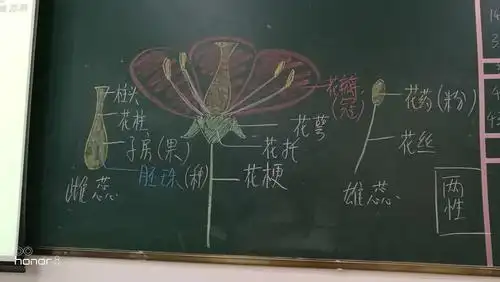 柱头
花柱
子房(果)
胚珠(种)
雌蕊
花瓣
(冠)
花萼
花托
花梗
花药(粉)
花丝
雄蕊
两性
honor